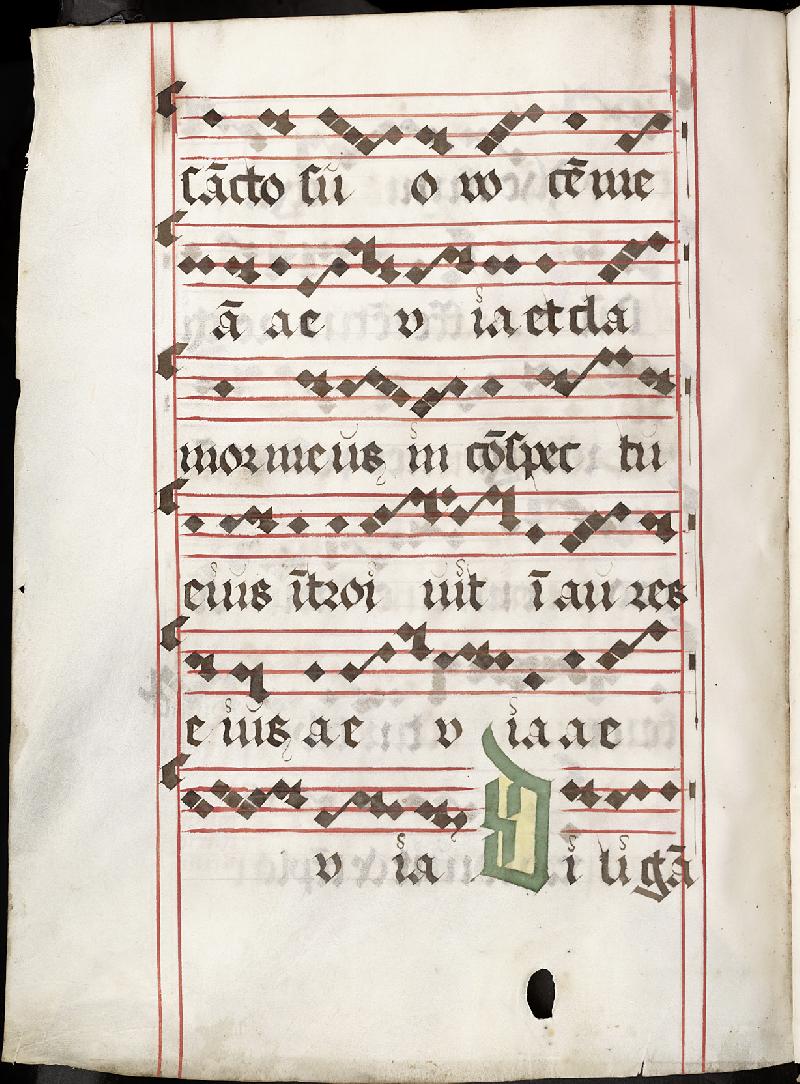 sācto su o vo cē me
ā ae v ia et cla
mor me us in cōspec tu
eius ītroi uit ī au res
e ius ae v ia ae
v ia Di li gā